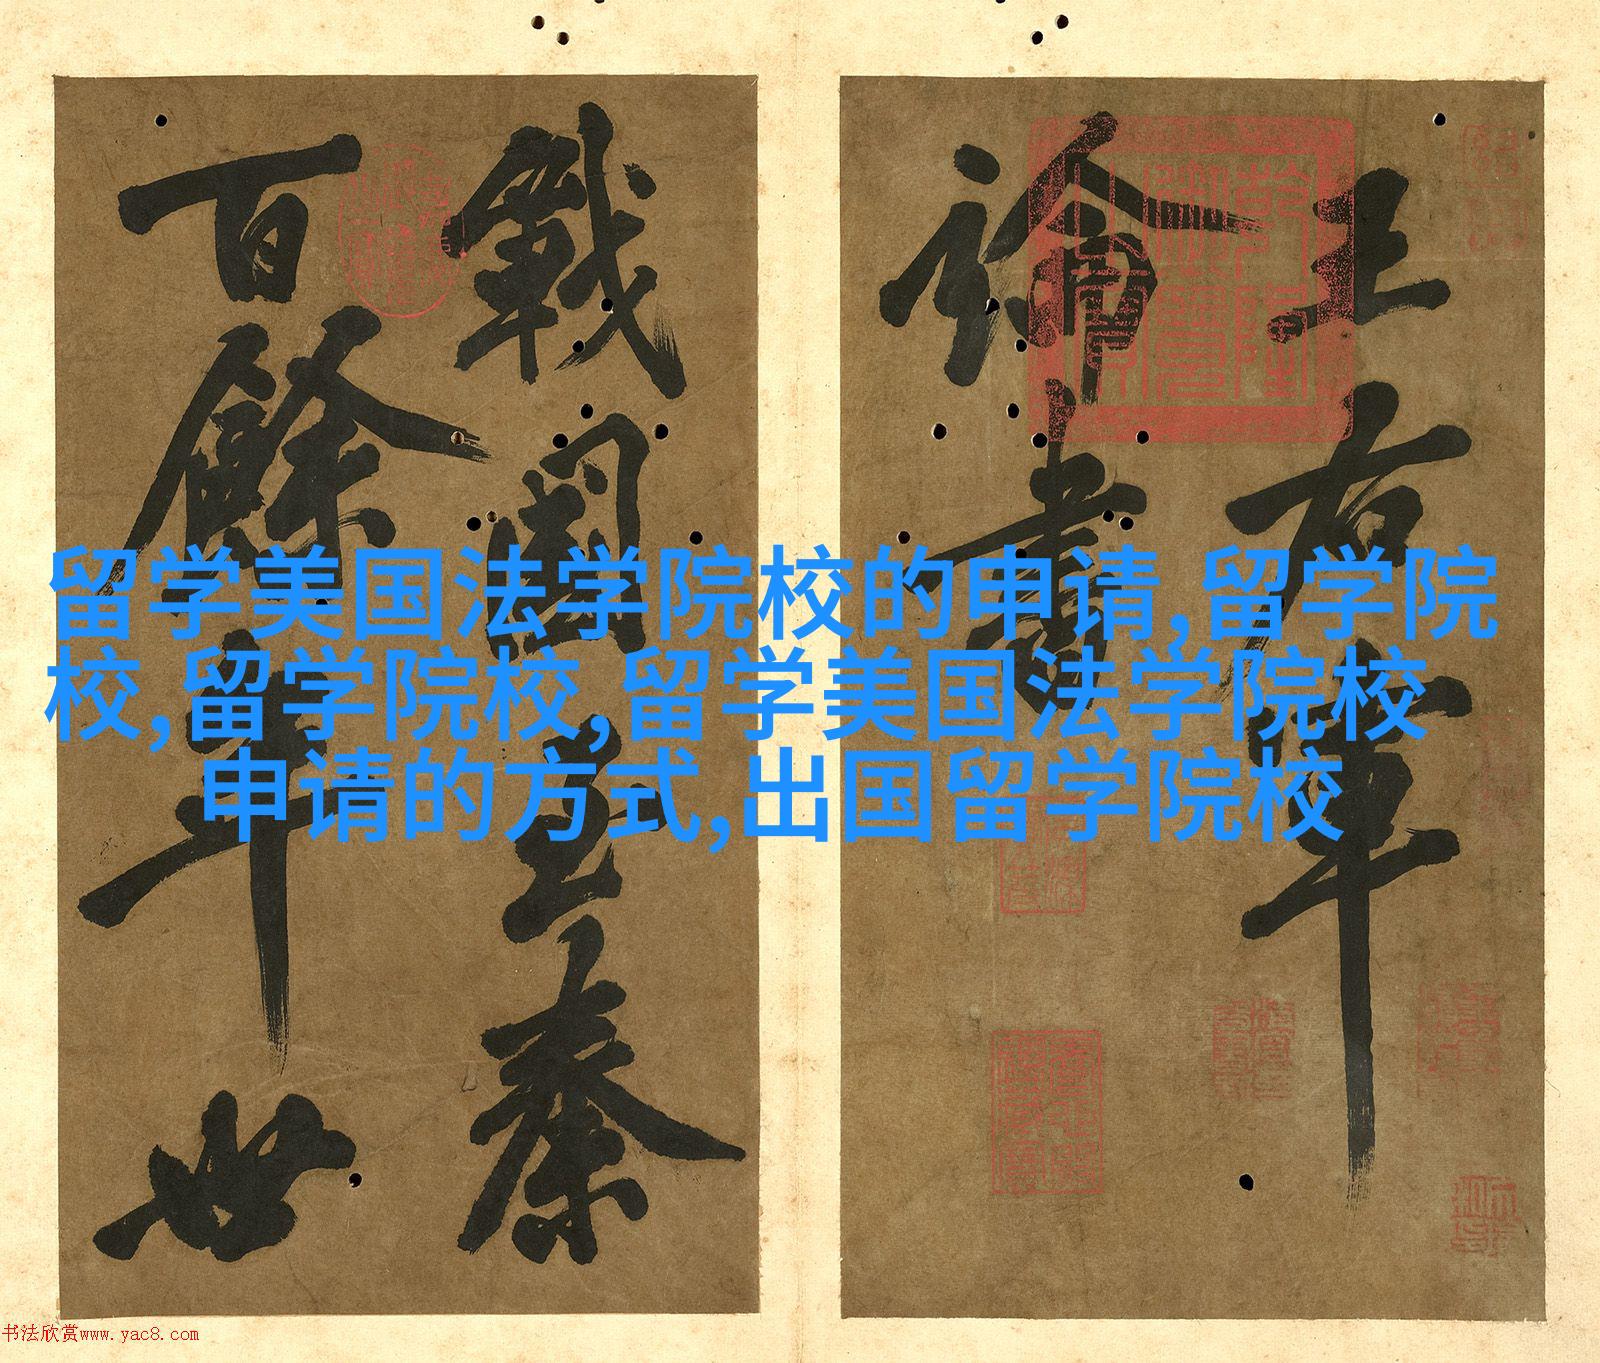 王右軍
論書
戰國至秦
百餘年世
乾隆御覽之寶
留学美国法学院校的申请,留学院
校,留学院校,留学美国法学院校
申请的方式,出国留学院校
书法欣赏www.yac8.com